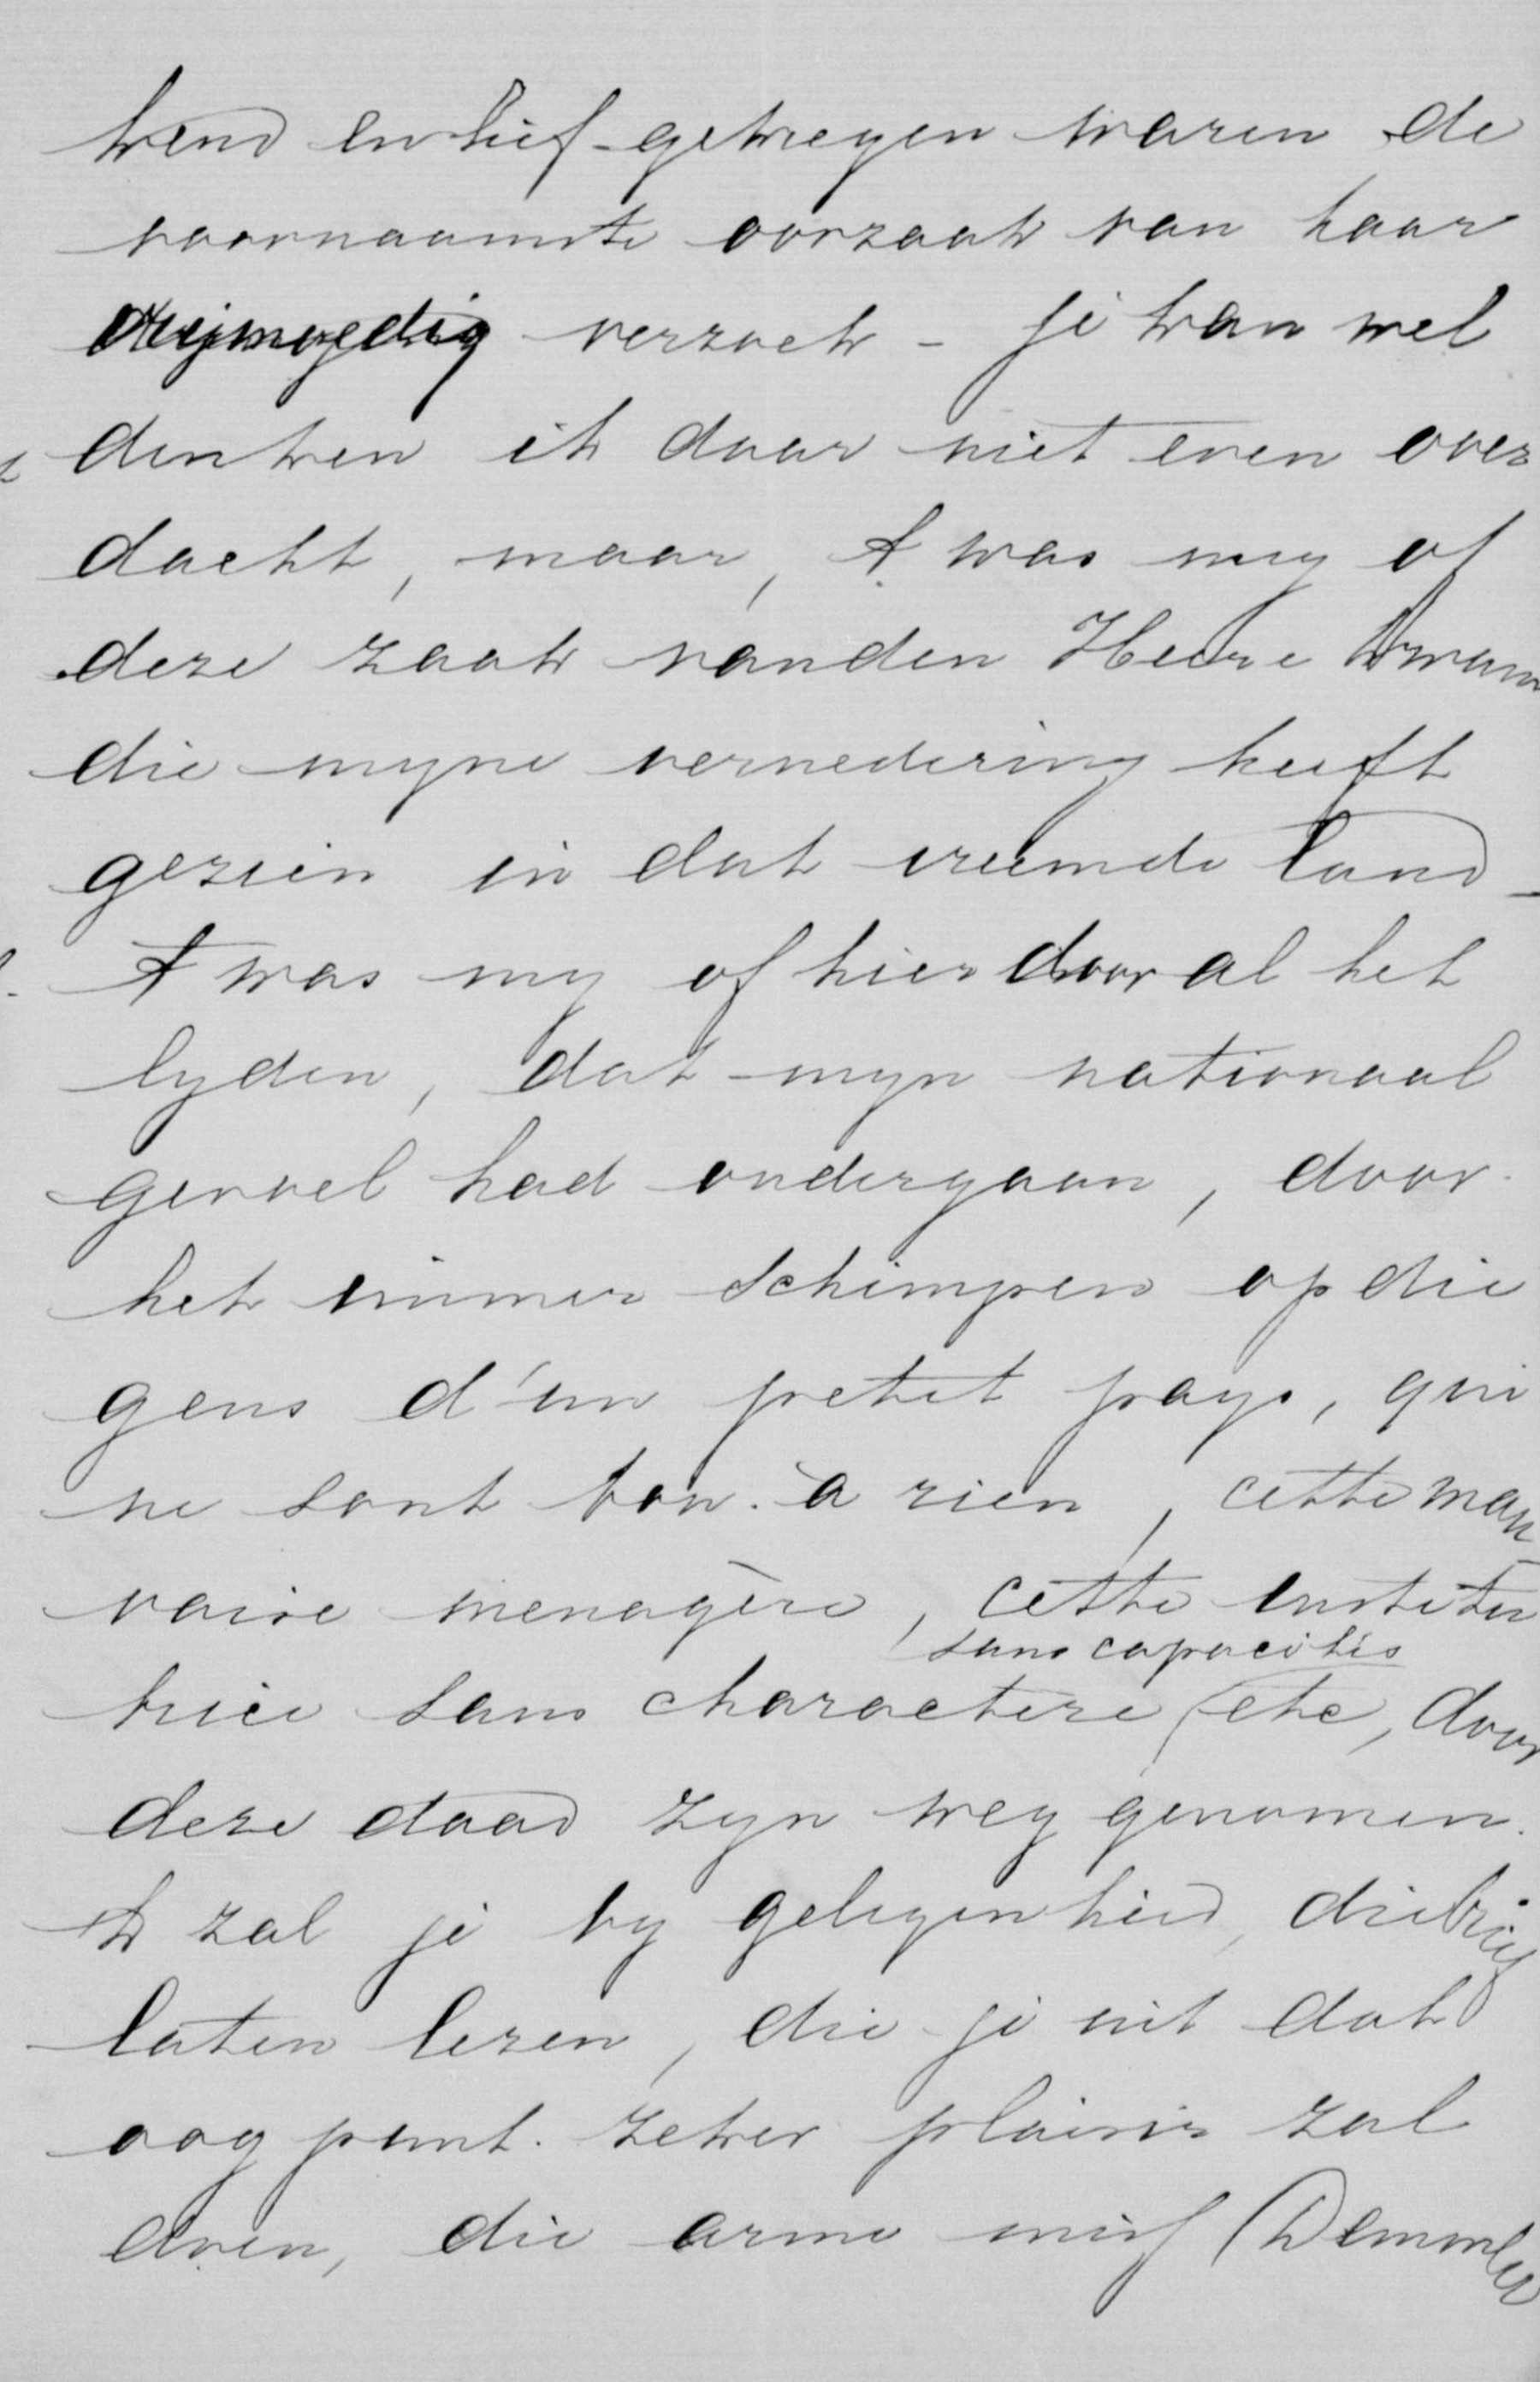 kend en lief gekregen waren de
voornaamste oorzaak van haar
vrijmoedig verzoek - je kan wel
denken ik daar niet even over
dacht, maar, 't was my of
deze zaak van den Heere kwam
die myne vernedering heeft
gezien in dat vreemde land -
't was my of hier door al het
lyden, dat myn nationaal
gevoel had ondergaan, door
het immer schimpen op die
gens d'un petit pays, qui
ne sont bon à rien, cette mau
vaise menagère, cette institu
trice sans charactere sans capacités etc, door
deze daad zyn weg genomen.
Ik zal je by gelegenheid, die brief
laten lezen, die je uit dat
oog punt zeker plaisir zal
doen, die arme miss Demmler